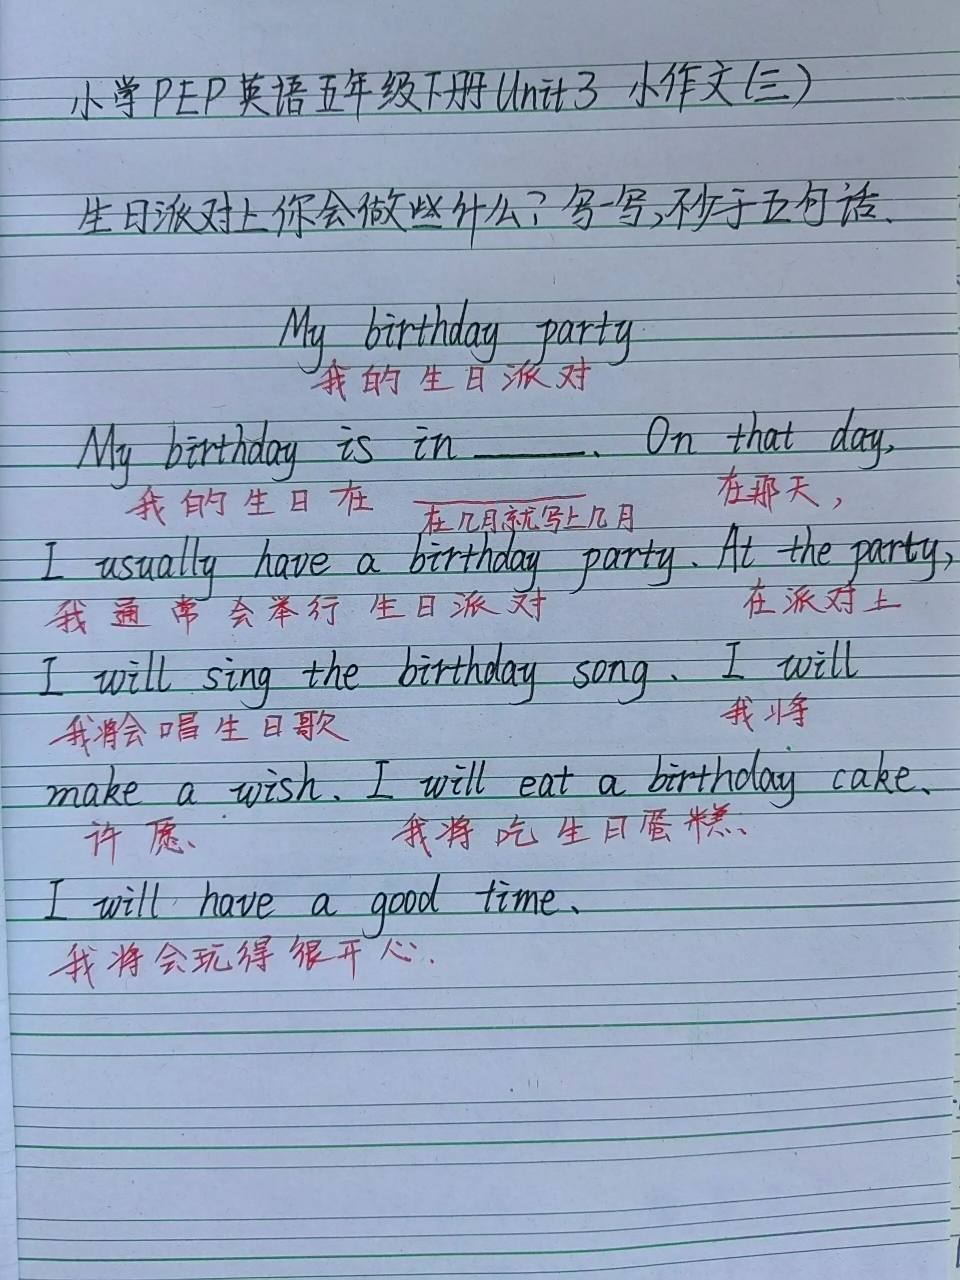 小学PEP英语五年级下册Unit3 小作文(三)
生日派对上你会做些什么?写一写,不少于五句话.
My birthday party
我的生日派对
My birthday is in ______. On that day,
我的生日在 在那天,
在几月就写上几月
I usually have a birthday party. At the party,
我通常会举行生日派对 在派对上
I will sing the birthday song. I will
我将会唱生日歌 我将
make a wish. I will eat a birthday cake.
许愿. 我将吃生日蛋糕.
I will have a good time.
我将会玩得很开心.